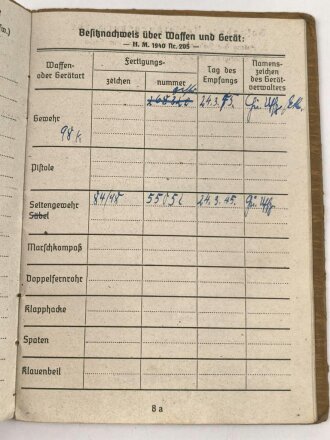 Besitznachweis über Waffen und Gerät:
— H. M. 1940 Nr. 205 —
Waffen- oder Gerätart
Fertigungs-
zeichen
nummer
Tag des Empfangs
Namens- zeichen des Gerät- verwalters
Gewehr 98k 24.3.
Pistole
Seitengewehr Säbel 84/98 24.3.45.
Marschkompaß
Doppelfernrohr
Klapphacke
Spaten
Klauenbeil
8 a